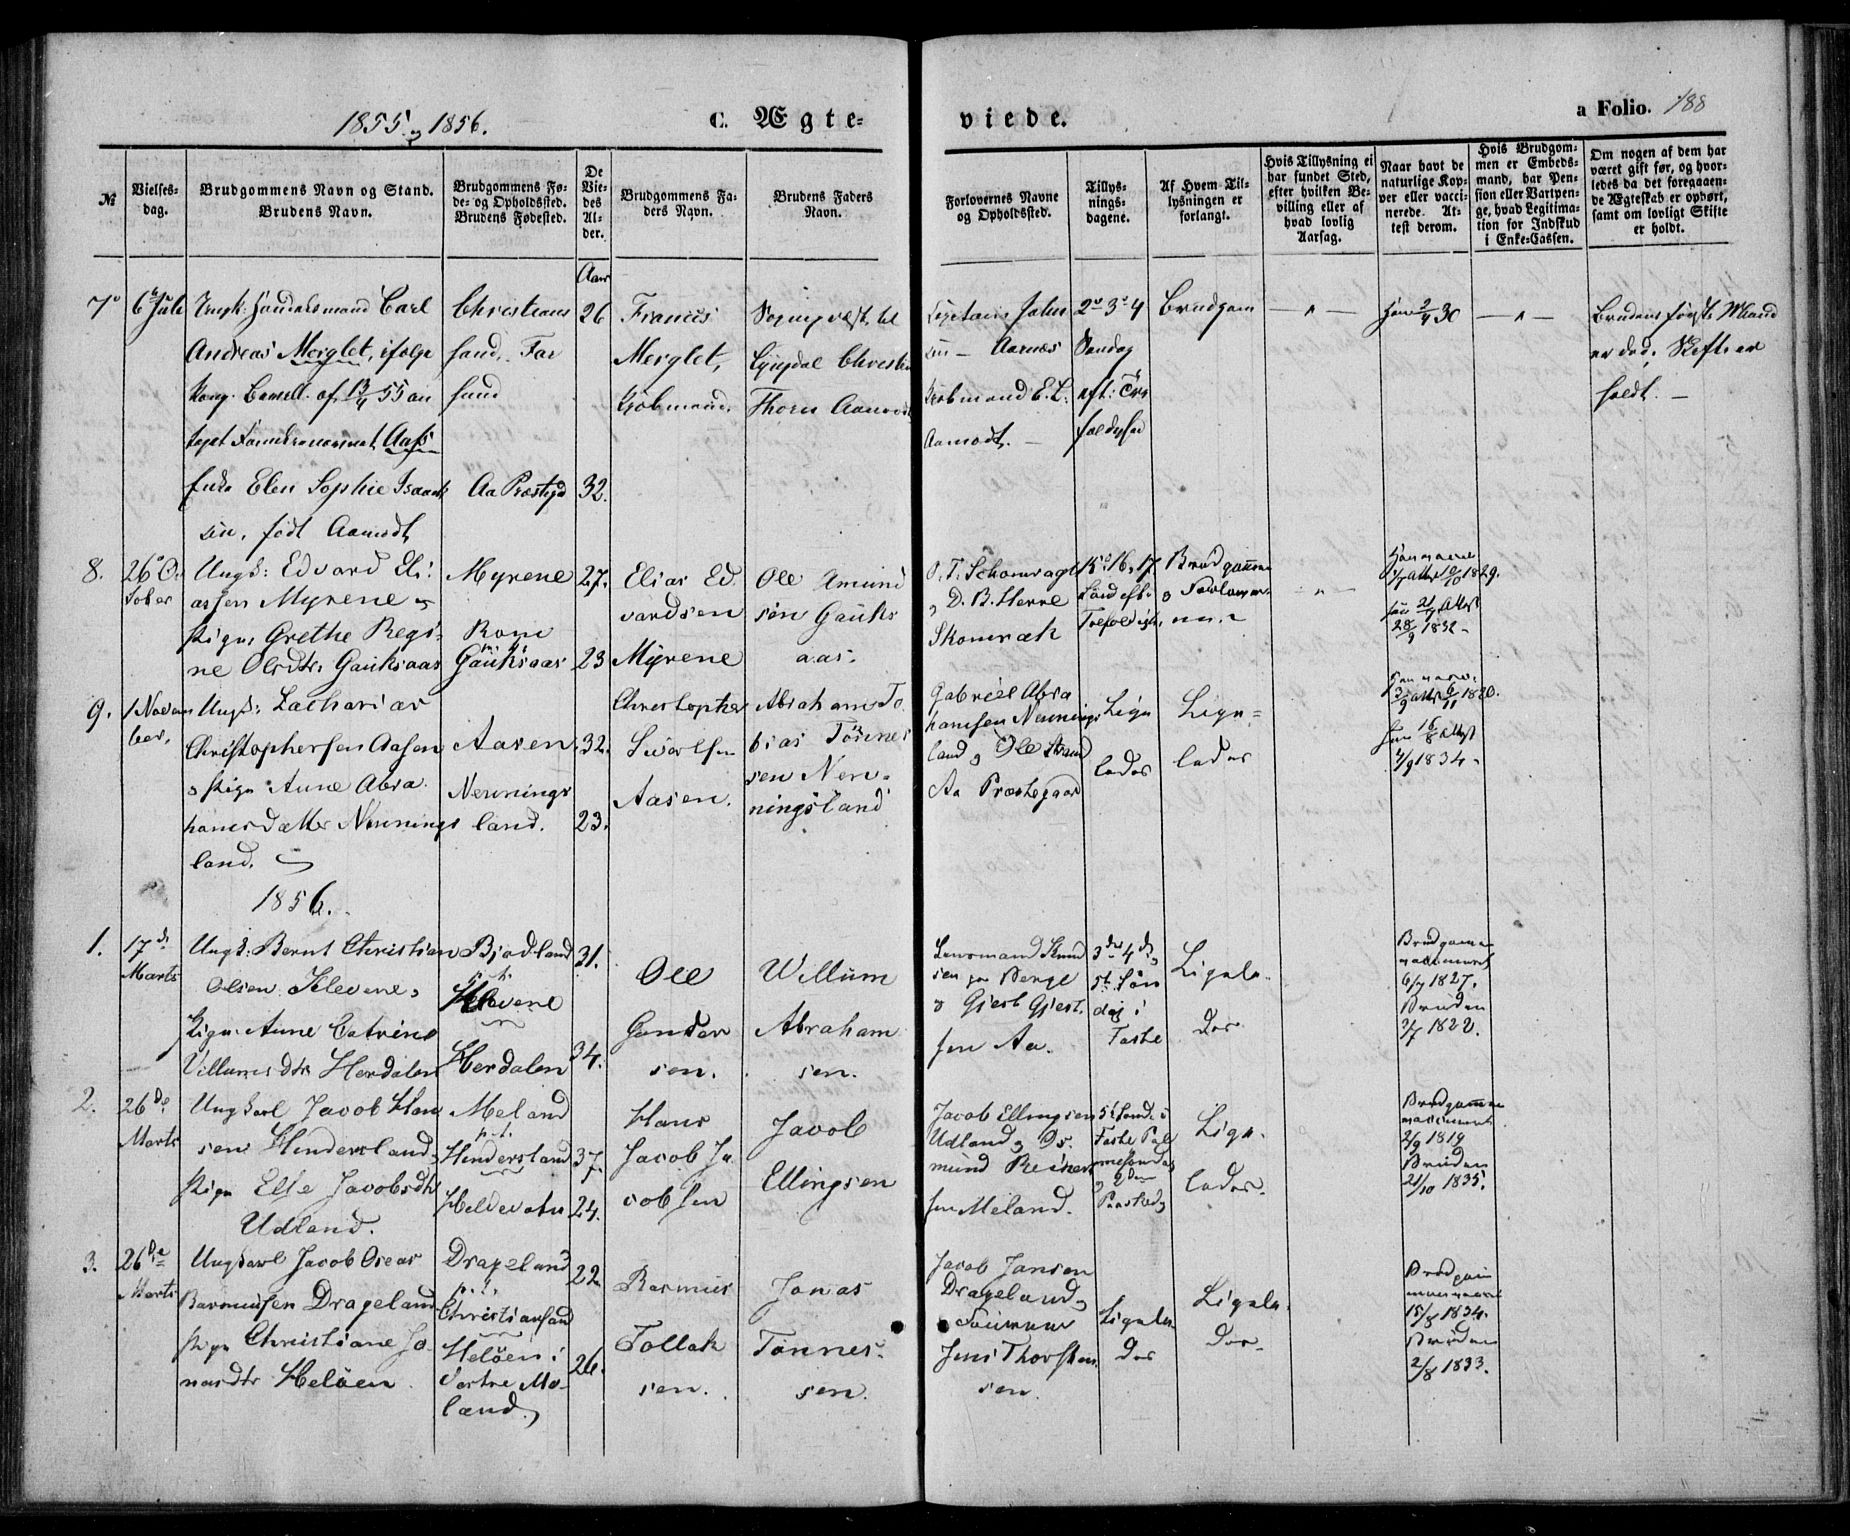 1855 og 1856.
C. Ægte-
viede.
a Folio. 188
№
Vielses-
dag.
Brudgommens Navn og Stand.
Brudens Navn.
Brudgommens Fø-
de- og Opholdssted.
Brudens Fødested.
De
Vie-
des
Al-
der.
Brudgommens Fa-
ders Navn.
Brudens Faders
Navn.
Forlovernes Navne
og Opholdssted.
Tillys-
nings-
dagene.
Af Hvem Til-
lysningen er
forlangt.
Hvis Tillysning ei
har fundet Sted,
efter hvilken Be-
villing eller af
hvad lovlig
Aarsag.
Naar havt de
naturlige Kop-
per eller vacci-
nerede. At-
test derom.
Hvis Brudgom-
men er Embeds-
mand, har Pen-
sion eller Vartpen-
ge, hvad Legitima-
tion for Indskud
i Enke-Cassen.
Om nogen af dem har
været gift før, og hvor-
ledes da det foregaaen-
de Ægteskab er ophørt,
samt om lovligt Skifte
er holdt.
Aar
7
6 Juli
Carl
Andreas Merglet, ifølge
Kong. Bevill. af 13/4 55 an
taget Familienavnet Aass
Enke Elen Sophie Isaack
sen, født Aamodt
Christians
sand, Far
sund
Aa Præstgd
26
32.
Francis
Merglet,
Kjøbmand.
Lyngdal Christen
Thorn Aamodt
Aarnes
Kjøbmand E. L.
Aamodt.
2, 3, 4
Søndag
eft: Tre
foldighed
Brudgom
Ham 2/4 30
Brudens første Mand
er død. Skifte er
holdt.
8.
26 Oc
tober
Ungk: Edvard Eli-
assen Myrene
Pigen Grethe Regi-
ne Olsdtr Gauksaas
Myrene
Rom
Gauksaas
27.
23
Elias Ed
vardsen
Myrene
Ole Amund
sen Gauks
aas.
O. T. Schomrag
og D. B. Herre
Skomrak
15, 16, 17
Sønd eft
Trefoldigh.
Brudgom
og Forlover
10/10 1829.
28/9 1832
9.
1 Novem
ber,
Ungk: Zacharias
Christophersen Aasen
Pigen Anne Abra
hamsdatter Nenning
land.
Aasen
Nennings
land.
32.
23.
Christopher
Sivertsen
Aasen.
Abraham To
bias Tønnes
sen Nen-
ningsland
Gabriel Abra
hamsen Nennings
land og Ole Strand
Aa Præstegaar
Lige
ledes
Lige-
ledes
6/11 1820.
4/9 1834
1856.
1.
17de
Marts
Ungk: Bernt Christian
Olsen Klevene,
Pigen Anne Catrine
Villumsdtr Herdalen
Bjodland
p. t.
Klevene
Herdalen
31.
34.
Ole
Gunder
sen.
Willum
Abraham
sen.
Lensmand Knud
sen paa Berge
og Gjert Gjert
sen Aa.
3de 4de
5te Søn
dag i
Faste
Ligele
des
Brudgommen
vaccineret
6/7 1827.
Bruden
3/7 1822.
2.
26de
Marts
Ungkarl Jacob Han
sen Hindersland,
Pigen Else Jacobsdtr
Udland.
Meland
p. t.
Hindersland
Heldevatn
37.
24.
Hans
Jacob Ja
cobsen
Jacob
Ellingsen
Jacob Ellingsen
Udland og Os
mund Reiers
sen Meland.
5te Sønd. i
Faste Pal
mesøndag
og 2den
Paaskedag
Lige-
ledes.
Brudgommen
vaccineret
2/9 1819
Bruden
21/10 1835.
3.
26de
Marts
Ungkarl Jacob Oseas
Rasmussen Drageland
Pigen Christiane Jo
nasdtr Heløen.
Drageland
p. t.
Christiansand
Heløen i
Vestre Mo-
land.
22
26.
Rasmus
Tollak
sen.
Jonas
Tønnes-
sen.
Jacob Jansen
Drageland,
Jens Thorsten
sen.
Ligele
des
Ligele
des
Brudgom
15/8 1834.
Bruden
2/8 1833.